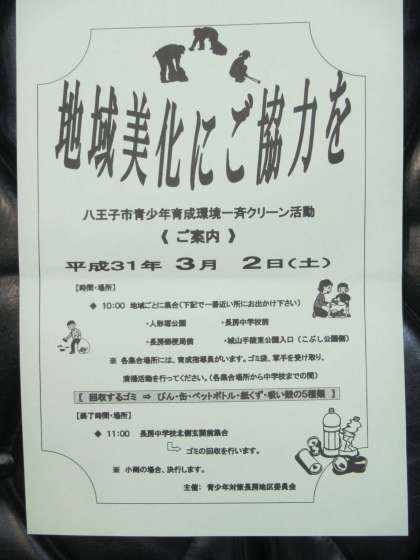 地域美化にご協力を
八王子市青少年育成環境一斉クリーン活動
《 ご案内 》
平成31年 3月 2日(土)
【時間・場所】
◆ 10:00 地域ごとに集合(下記で一番近い所にお出かけ下さい)
・人形塚公園 ・長房中学校前
・長房郵便局前 ・城山手健東公園入口(こぶし公園側)
※ 各集合場所には、育成指導員がいます。ゴミ袋、軍手を受け取り、
清掃活動を行ってください。(各集合場所から中学校までの間)
〖 回収するゴミ ⇒ びん・缶・ペットボトル・紙くず・吸い殻の5種類 〗
【終了時間・場所】
◆ 11:00 長房中学校北側玄関前集合
ゴミの回収を行います。
※ 小雨の場合、決行します。
主催: 青少年対策長房地区委員会